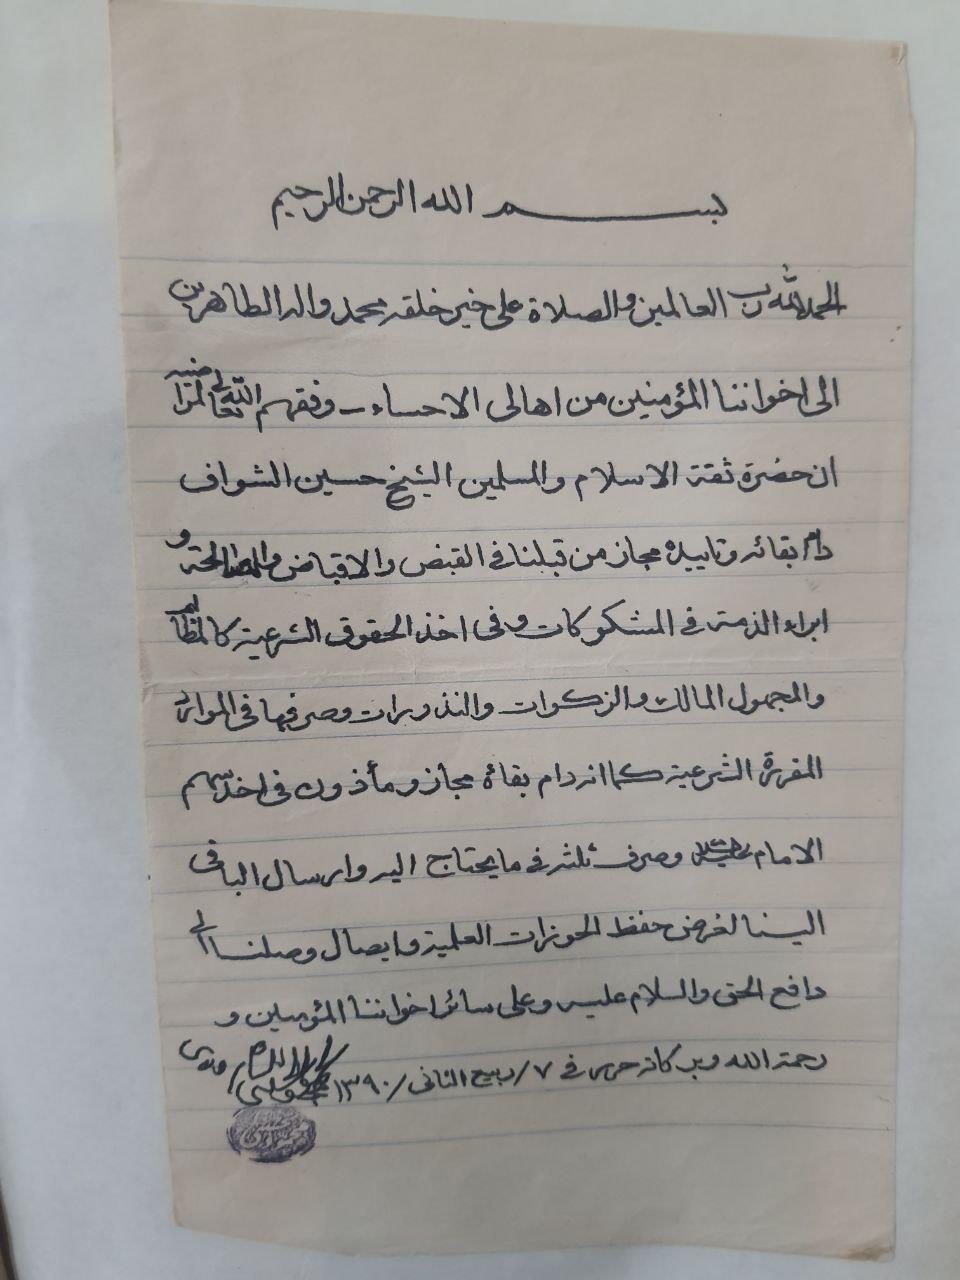 بسم الله الرحمن الرحيم
الحمد لله رب العالمين والصلاة على خير خلقه محمد واله الطاهرين
الى اخواننا المؤمنين من اهالى الاحساء - وفقهم الله تعالى لمراضيه
ان حضرة ثقة الاسلام والمسلمين الشيخ حسين الشواف
دام بقائه وتاييده مجاز من قبلنا في القبض والاقباض والمصالحة و
ابراء الذمة في المشكوكات وفى اخذ الحقوق الشرعية كالمظالم
والمجهول المالك والزكوات والنذورات وصرفها فى الموارد
المقررة الشرعية كما انه دام بقائه مجاز ومأذون فى اخذ سهم
الامام وصرف ثلثه في ما يحتاج اليه وارسال الباقى
الينا لغرض حفظ الحوزات العلمية وايصال وصلنا الى
دافع الحق والسلام عليه وعلى سائر اخواننا المؤمنين و
رحمة الله وبركاته حرر في ٧/ ربيع الثانى /١٣٩٠